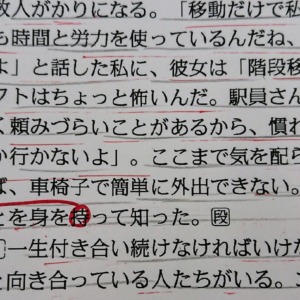 数人がかりになる。「移動だけで私
も時間と労力を使っているんだね、
よ」と話した私に、彼女は「階段移
フトはちょっと怖いんだ。駅員さん
く頼みづらいことがあるから、慣れ
か行かないよ」。ここまで気を配ら
ば、車椅子で簡単に外出できない。
とを身を持って知った。段
一生付き合い続けなければいけな
と向き合っている人たちがいる。